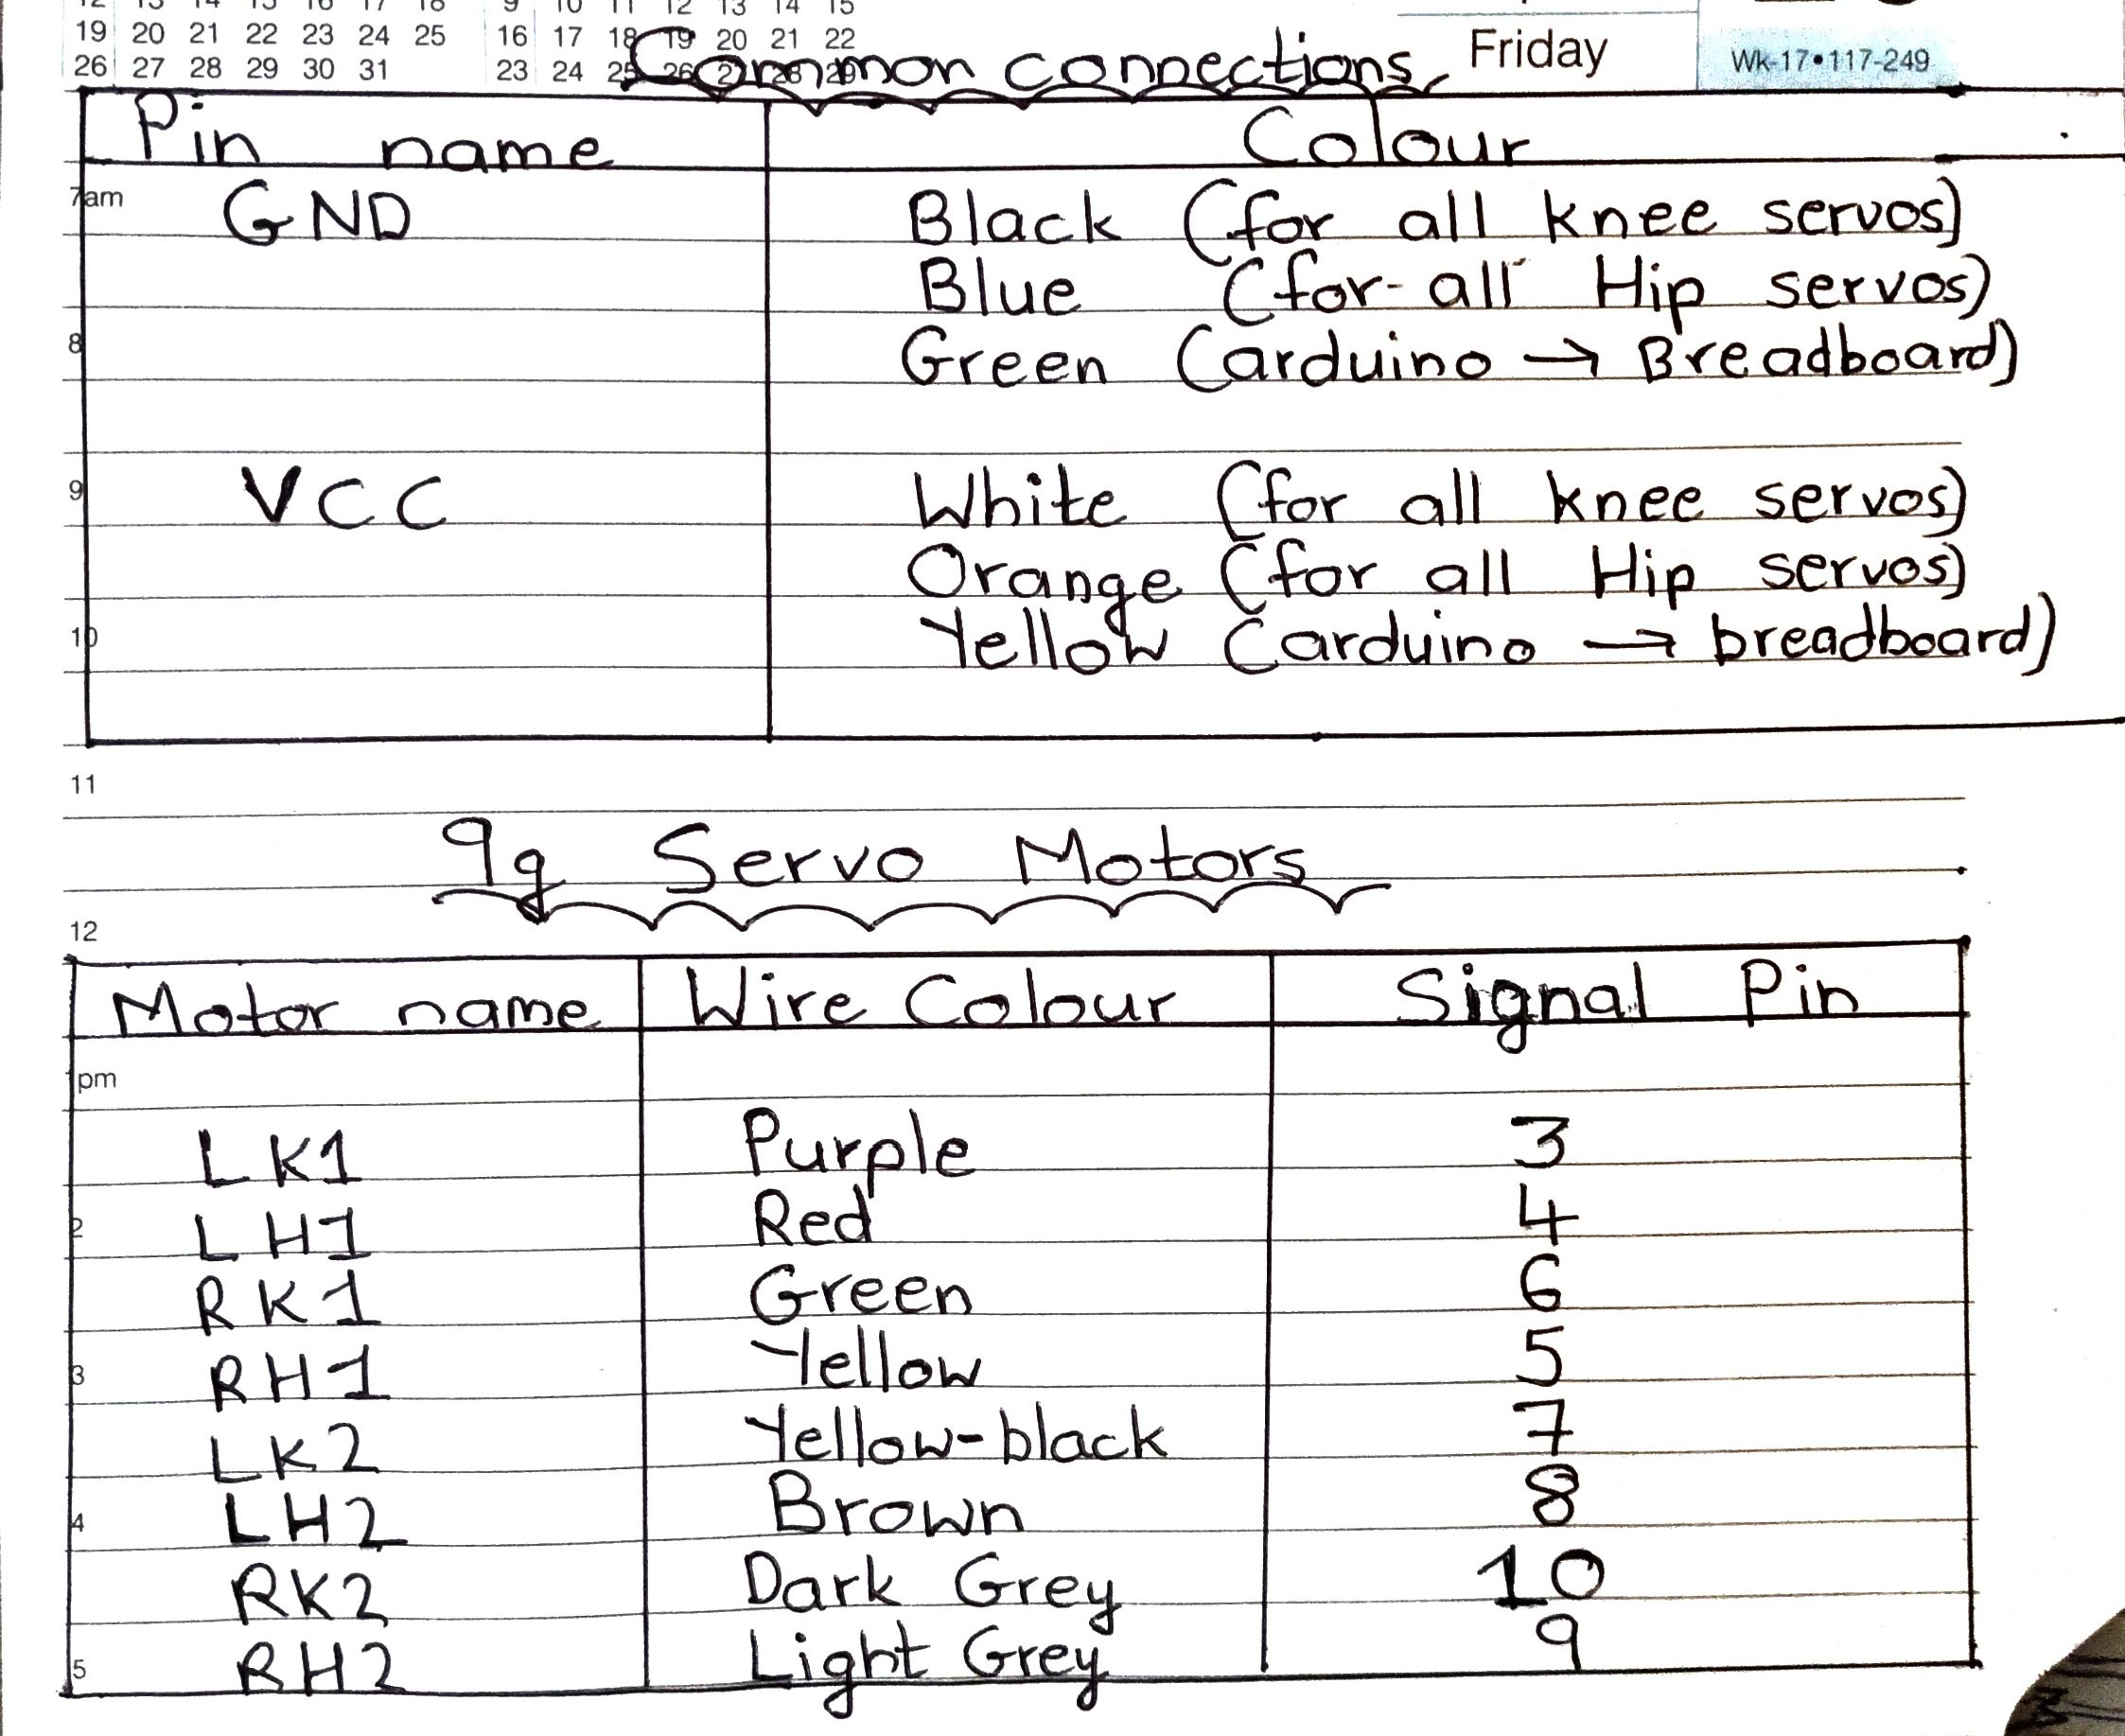 19 20 21 22 23 24 25 16 17 18 19 20 21 22
26 27 28 29 30 31 23 24 25 26 27 28 29
Friday
Wk-17•117-249
Common connections
Pin name Colour
7am GND Black (for all knee servos)
Blue (for all Hip servos)
8 Green (arduino → Breadboard)
9 VCC White (for all knee servos)
Orange (for all Hip servos)
10 Yellow (arduino → breadboard)
11
9g Servo Motors
12
Motor name Wire Colour Signal Pin
1pm
LK1 Purple 3
2 LH1 Red 4
RK1 Green 6
3 RH1 Yellow 5
LK2 Yellow-black 7
4 LH2 Brown 8
RK2 Dark Grey 10
5 RH2 Light Grey 9